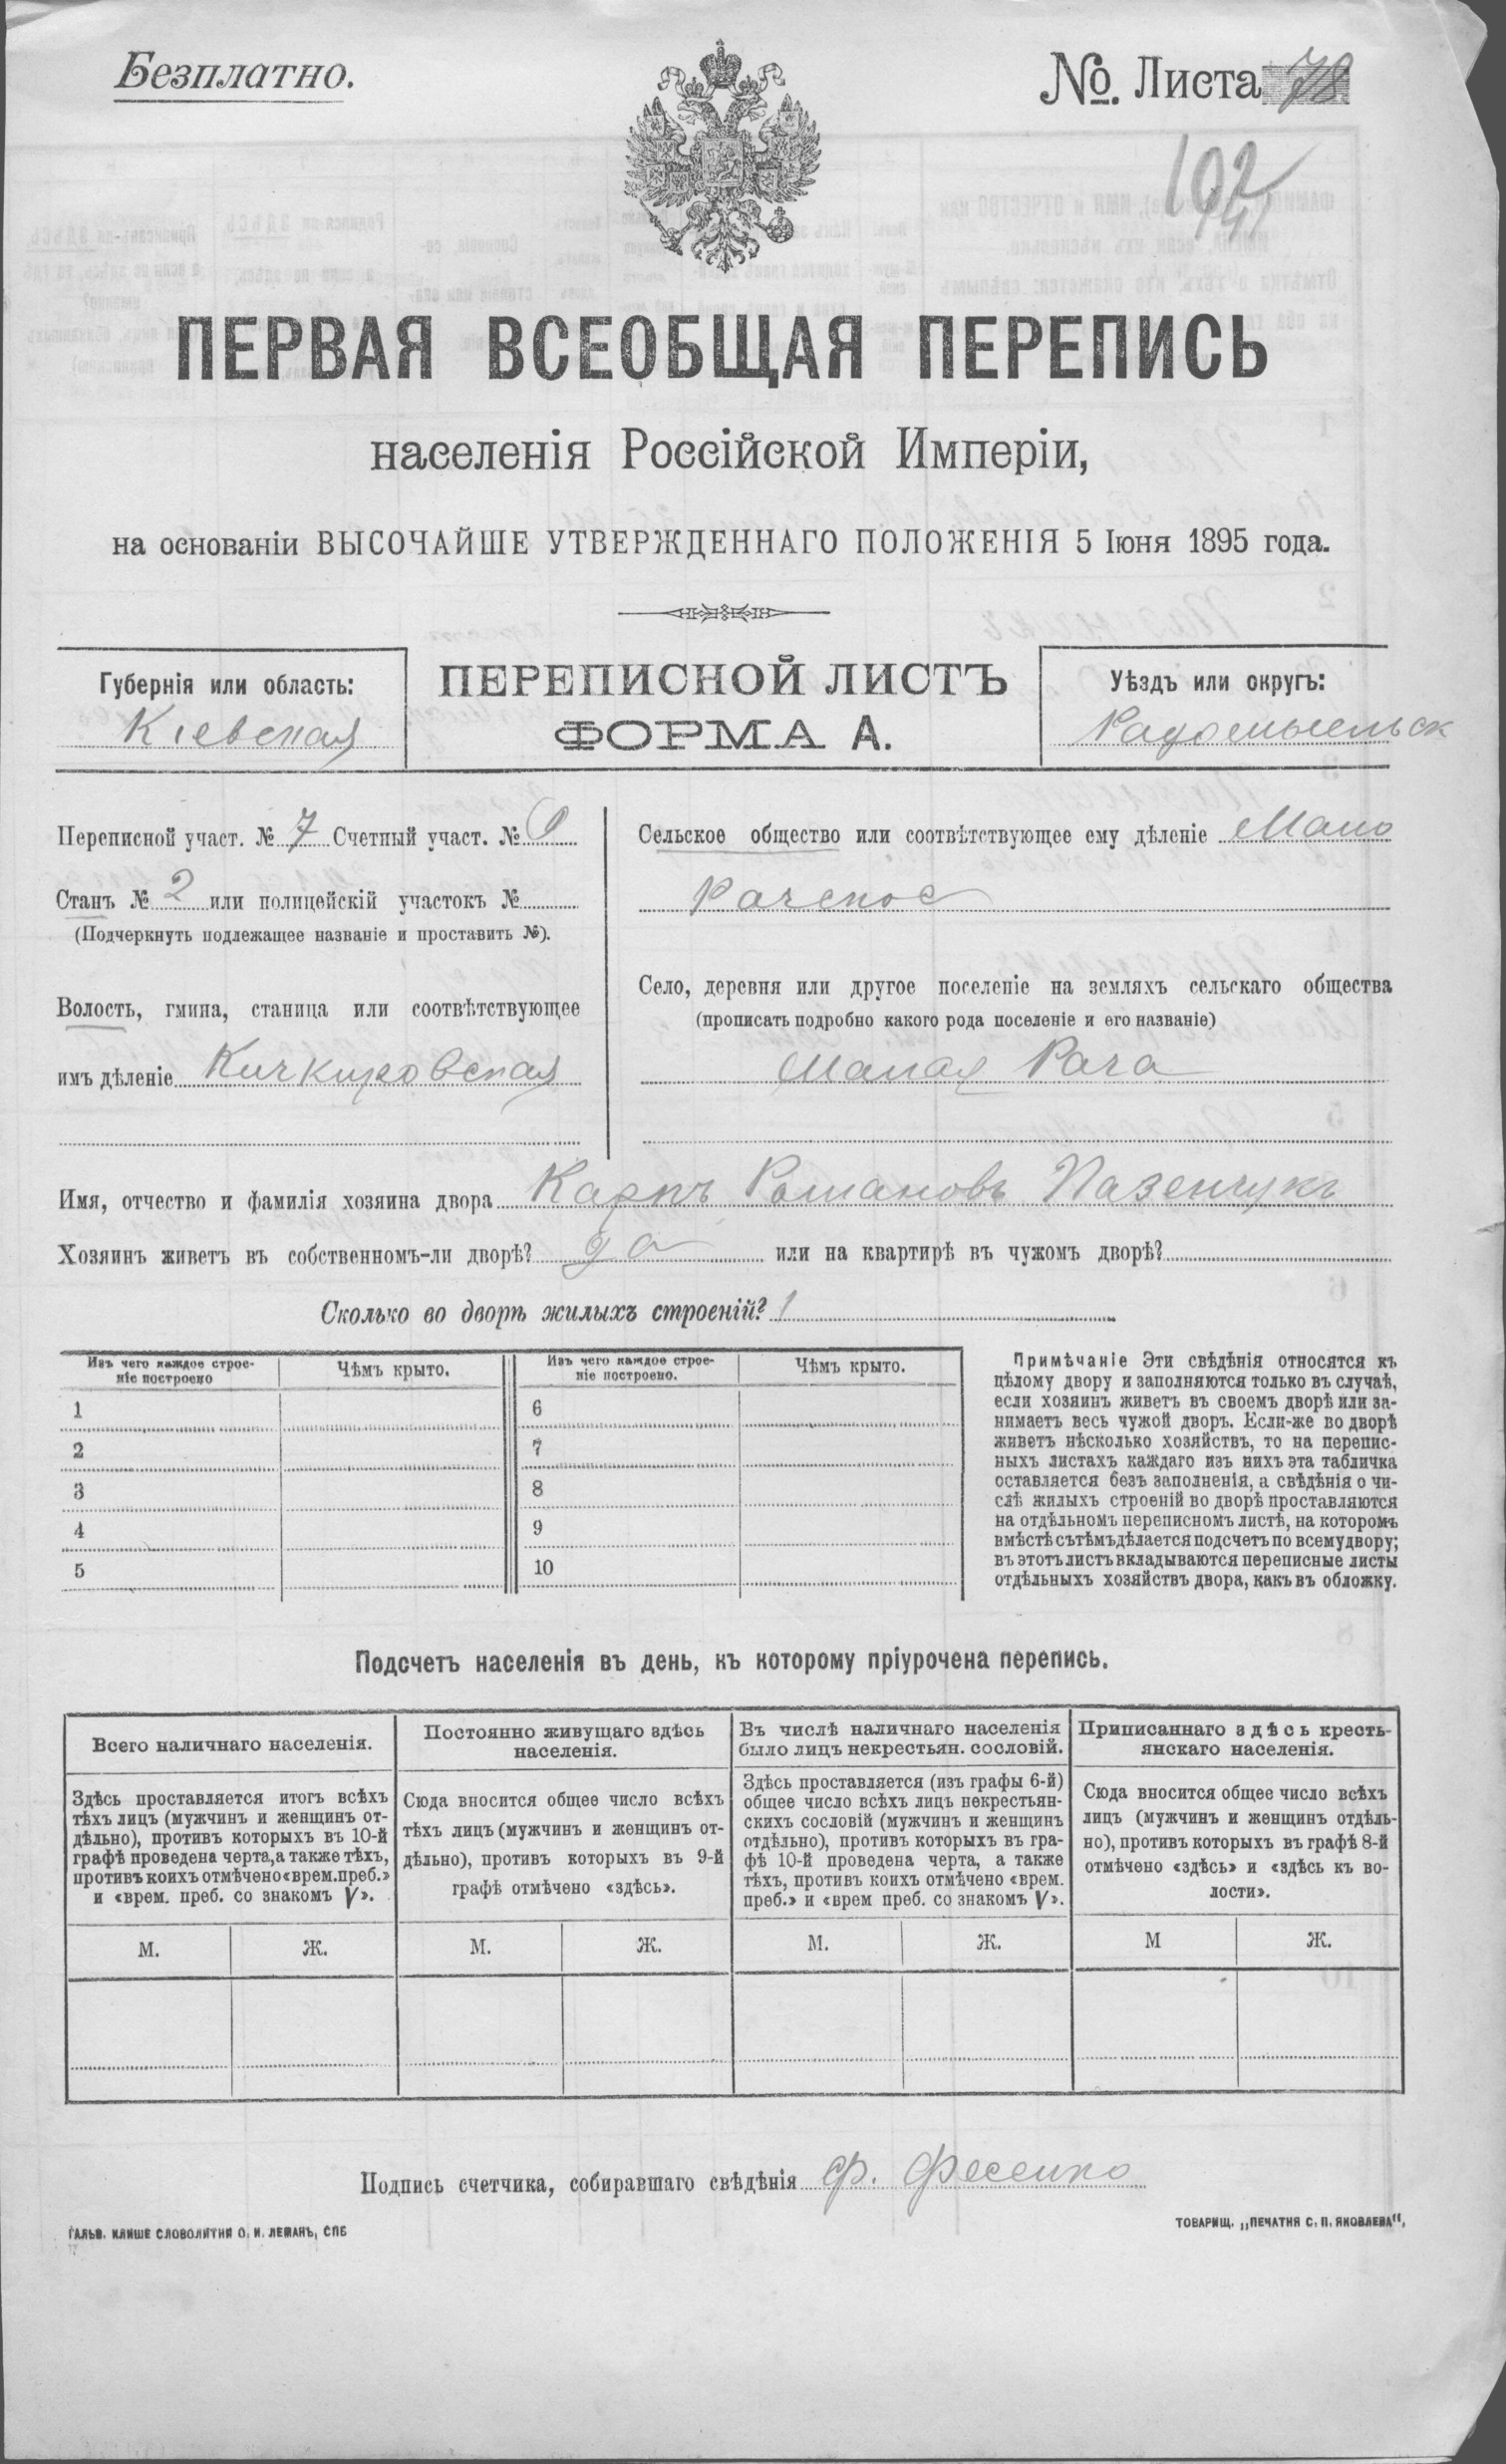 Безплатно.
№. Листа 78
192
ПЕРВАЯ ВСЕОБЩАЯ ПЕРЕПИСЬ
населенія Россійской Имперіи,
на основаніи ВЫСОЧАЙШЕ УТВЕРЖДЕННАГО ПОЛОЖЕНІЯ 5 Іюня 1895 года.
Губернія или область:
Кіевская
ПЕРЕПИСНОЙ ЛИСТЪ
ФОРМА А.
Уѣздъ или округъ:
Радомысльск
Переписной участ. № 7 Счетный участ. №
Станъ № 2 или полицейскій участокъ №
(Подчеркнуть подлежащее названіе и проставить №).
Волость, гмина, станица или соотвѣтствующее
имъ дѣленіе Кичкировская
Сельское общество или соотвѣтствующее ему дѣленіе Мало
Рачское
Село, деревня или другое поселеніе на земляхъ сельскаго общества
(прописать подробно какого рода поселеніе и его названіе)
Малая Рача
Имя, отчество и фамилія хозяина двора Карпъ Романовъ Пазенчукъ
Хозяинъ живетъ въ собственномъ-ли дворѣ? да или на квартирѣ въ чужомъ дворѣ?
Сколько во дворѣ жилыхъ строеній? 1
Изъ чего каждое строе-
ніе построено
Чѣмъ крыто.
Изъ чего каждое строе-
ніе построено.
Чѣмъ крыто.
1 6
2 7
3 8
4 9
5 10
Примѣчаніе Эти свѣдѣнія относятся къ
цѣлому двору и заполняются только въ случаѣ,
если хозяинъ живетъ въ своемъ дворѣ или за-
нимаетъ весь чужой дворъ. Если-же во дворѣ
живетъ нѣсколько хозяйствъ, то на перепис-
ныхъ листахъ каждаго изъ нихъ эта табличка
оставляется безъ заполненія, а свѣдѣнія о чи-
слѣ жилыхъ строеній во дворѣ проставляются
на отдѣльномъ переписномъ листѣ, на которомъ
вмѣстѣ съ тѣмъ дѣлается подсчетъ по всему двору;
въ этотъ листъ вкладываются переписные листы
отдѣльныхъ хозяйствъ двора, какъ въ обложку.
Подсчетъ населенія въ день, къ которому пріурочена перепись.
Всего наличнаго населенія.
Здѣсь проставляется итогъ всѣхъ
тѣхъ лицъ (мужчинъ и женщинъ от-
дѣльно), противъ которыхъ въ 10-й
графѣ проведена черта, а также тѣхъ,
противъ коихъ отмѣчено «врем. преб.»
и «врем. преб. со знакомъ V».
М. Ж.
Постоянно живущаго здѣсь
населенія.
Сюда вносится общее число всѣхъ
тѣхъ лицъ (мужчинъ и женщинъ от-
дѣльно), противъ которыхъ въ 9-й
графѣ отмѣчено «здѣсь».
М. Ж.
Въ числѣ наличнаго населенія
было лицъ некрестьян. сословій.
Здѣсь проставляется (изъ графы 6-й)
общее число всѣхъ лицъ некрестьян-
скихъ сословій (мужчинъ и женщинъ
отдѣльно), противъ которыхъ въ гра-
фѣ 10-й проведена черта, а также
тѣхъ, противъ коихъ отмѣчено «врем.
преб.» и «врем преб. со знакомъ V».
М. Ж.
Приписаннаго здѣсь кресть-
янскаго населенія.
Сюда вносится общее число всѣхъ
лицъ (мужчинъ и женщинъ отдѣль-
но), противъ которыхъ въ графѣ 8-й
отмѣчено «здѣсь» и «здѣсь къ во-
лости».
М Ж.
Подпись счетчика, собиравшаго свѣдѣнія Ф. Фесенко
ГАЛЬВ. КЛИШЕ СЛОВОЛИТНИ О. И. ЛЕМАНЪ, СПБ
ТОВАРИЩ. „ПЕЧАТНЯ С. П. ЯКОВЛЕВА“,